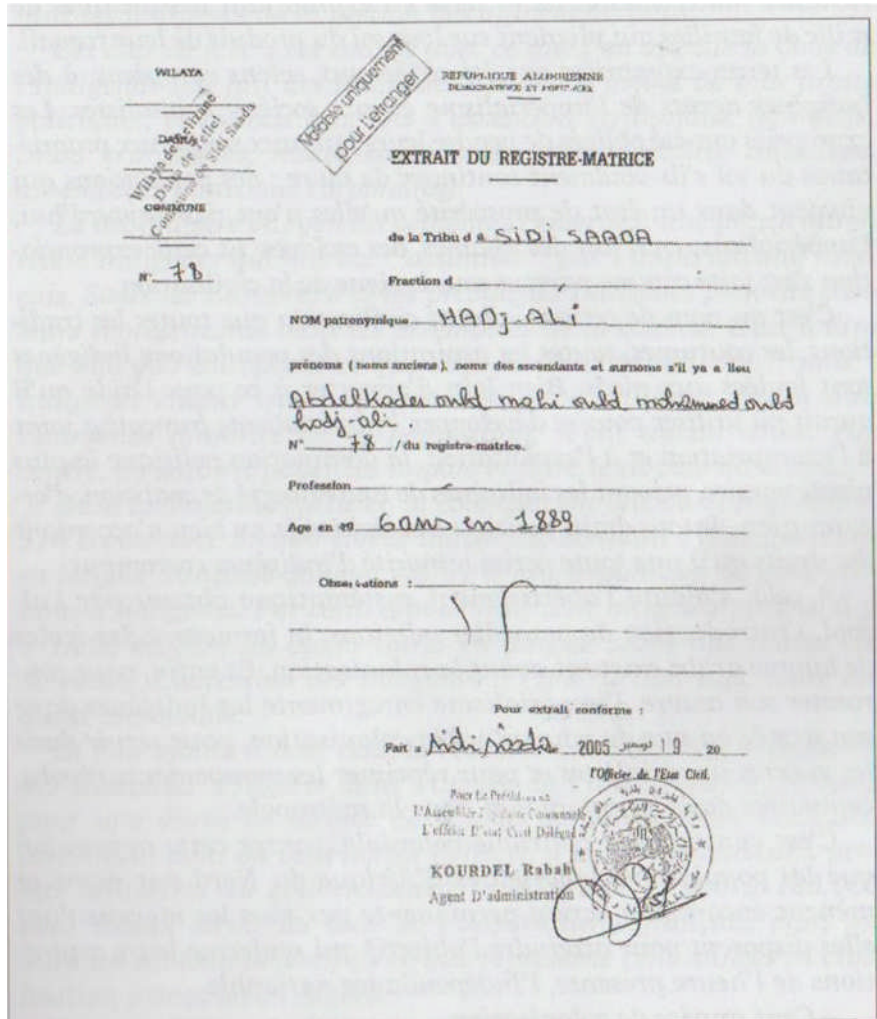 WILAYA
DAIRA
Wilaya de Relizane
Daira de Yellel
Commune de Sidi Saada
COMMUNE
N° 78
Etablis uniquement
pour L'etranger
REPUBLIQUE ALGERIENNE
DEMOCRATIQUE ET POPULAIRE
EXTRAIT DU REGISTRE-MATRICE
de la Tribu d e SIDI SAADA
Fraction d
NOM patronymique HADJ-ALI
prénoms (noms anciens), noms des ascendants et surnoms s'il ya a lieu
Abdelkader ould mahi ould mohammed ould
hadj-ali
N° 78 du registre-matrice.
Profession
Age en 19 6 ans en 1889
Observations :
Pour extrait conforme :
Fait a Sidi Saada 2005 19 20
l'Officier de l'Etat Civil.
Pour Le Président
L'Assemblée Populaire Communale
L'officier D'etat Civil Délégué
KOURDEL Rabah
Agent D'administration